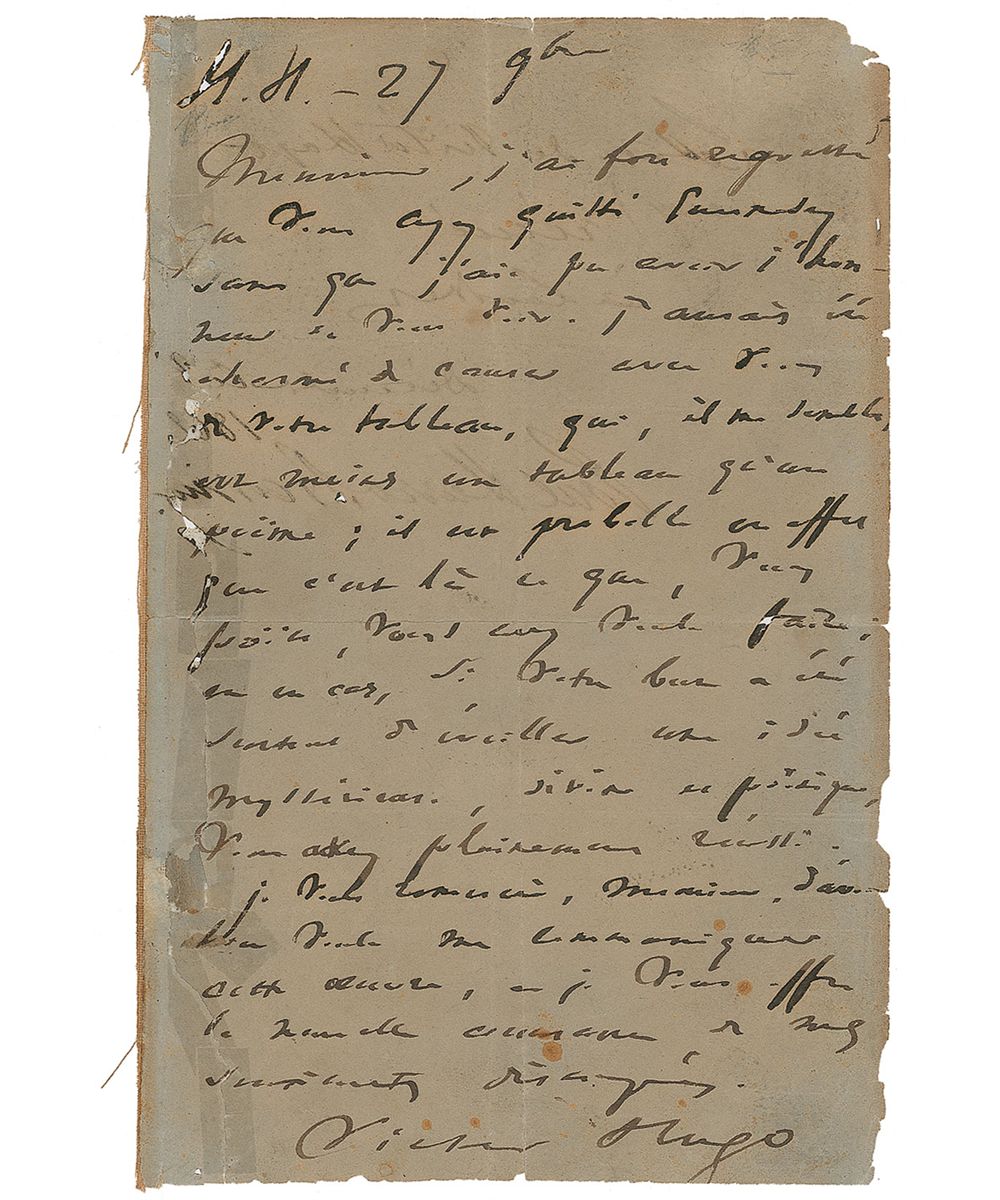 H. H. – 27 9bre
Monsieur, j'ai fort regretté
que vous ayez quitté Guernesey
sans que j'aie pu avoir l'hon-
neur de vous voir. J'aurais été
charmé de causer avec vous
de votre tableau, qui, il me semble,
est moins un tableau qu'un
poème ; il est probable en effet
que c'est là ce que, vous
poëte, vous avez voulu faire ;
en ce cas, si votre but a été
surtout d'éveiller une idée
mystérieuse, divine et poétique,
vous avez pleinement réussi.
je vous remercie, monsieur, d'avoir
bien voulu me communiquer
cette œuvre, et je vous offre
la nouvelle assurance de mes
sentiments distingués.
Victor Hugo